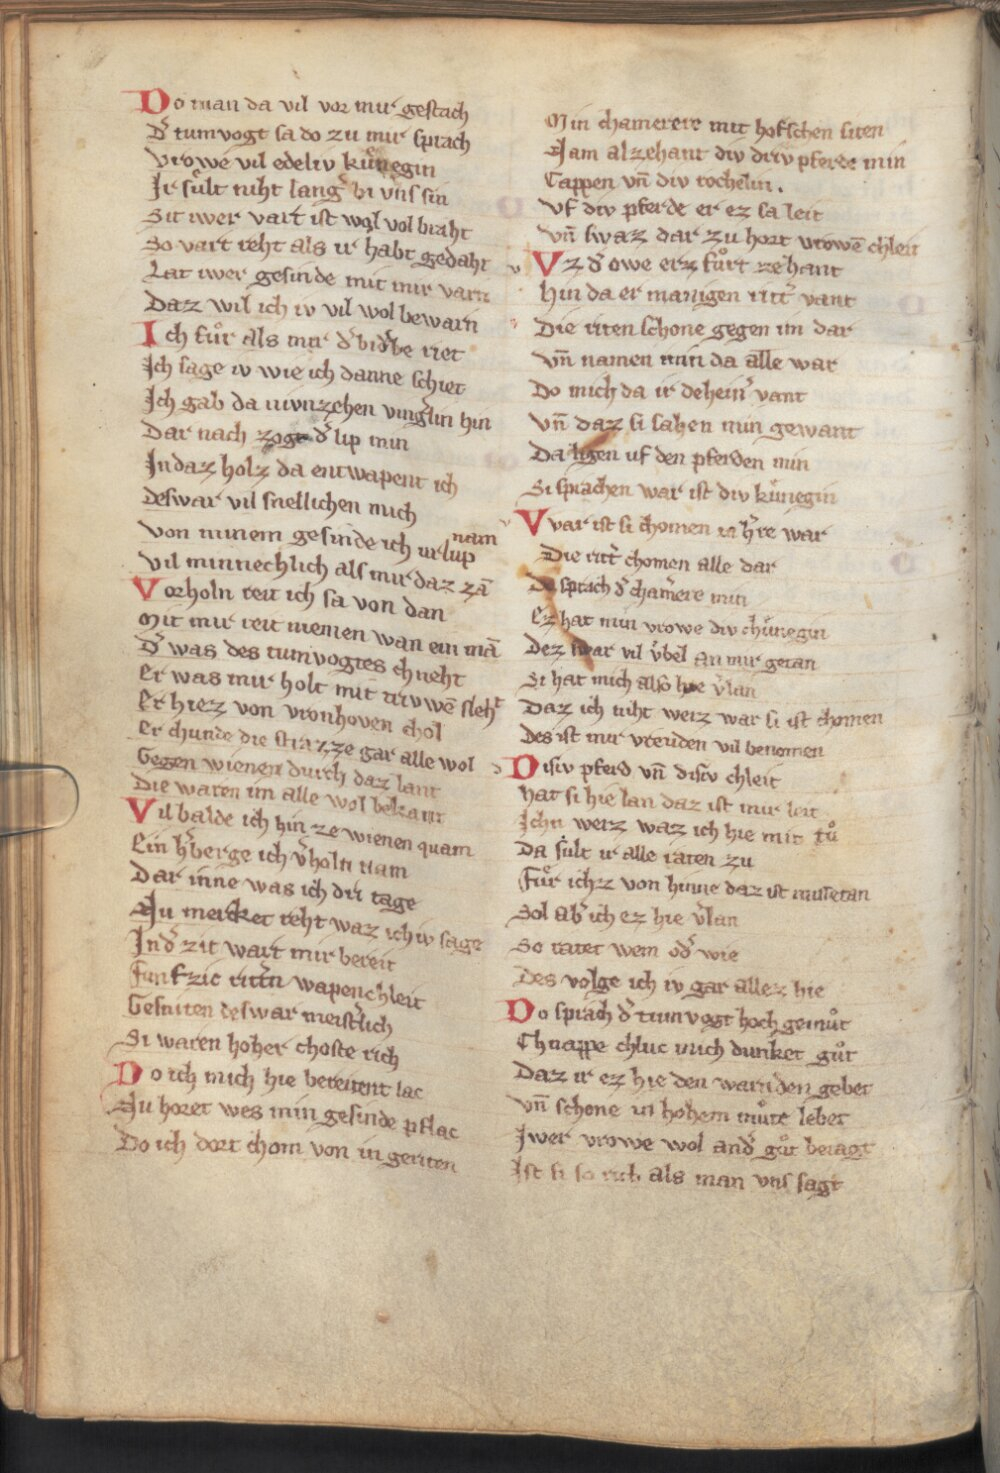 Do man da vil vor mir gestach
Dˢ tumvogt sa do zu mir sprach
Vrowe vil edeliv kuͤnegin
Ir suͤlt niht langˢ bi vns sin
Sit iwer vart ist wol vol braht
So vart reht als ir habt gedaht
Lat iwer gesinde mit mir varn
Daz wil ich iv vil wol bewarn
Ich fuͦr als mir dˢ bidˢbe riet
Ich sage iv wie ich danne schiet
Ich gab da nivnzehen vingˢlin hin
Dar nach zogt dˢ lip min
In daz holz da entwapent ich
Deswar vil snellichen mich
nam
Von minem gesinde ich vrlup
Vil minnechlich als mir daz zā
Vorholn reit ich sa von dan
Mit mir reit niemen wan ein mā
Dˢ was des tumvogtes chneht
Er was mir holt mit trivwē sleht
Er hiez von vronhoven chol
Er chunde die strazze gar alle wol
Gegen wienen durch daz lant
Die waren im alle wol bekant
Vil balde ich hin ze wienen quam
Ein hˢberge ich vˢholn nam
Dar inne was ich dri tage
Nu merket reht waz ich iv sage
In dˢ zit wart mir bereit
Funfzic rittˢn wapenchleit
Gesniten deswar meistˢlich
Si waren hoher choste rich
Do ich mich hie bereitent lac
Nu horet wes min gesinde pflac
Do ich dort chom von in geriten
Min chamerere mit hofschen siten
Nam alzehant div driv pferde min
Cappen vn̄ div rochelin.
Vf div pferde er ez sa leit
Vn̄ swaz dar zu hort vrowē chleit
Vz dˢ owe erz fuͦrt ze hant
Hin da er manigen rittˢ vant
Die riten schone gegen im dar
Vn̄ namen min da alle war
Do mich da ir deheinˢ vant
Vn̄ daz si sahen min gewant
Da ligen uf den pferden min
Si sprachen war ist div kuͤnegin
Var ist si chomen in hˢre war
Die rittˢ chomen alle dar
Do sprach dˢ chamˢere min
Ez hat min vrowe div chuͤnegin
Dez swar vil vˢbel an mir getan
Si hat mich also hie vˢlan
Daz ich niht weiz war si ist chomen
Des ist mir vreuden vil benomen
Disiv pferd vn̄ disiv chleit
Hat si hie lan daz ist mir leit
Ichn weiz waz ich hie mit tuͦ
Da sult ir alle raten zu
Fuͤr ichz von hinne daz ist missetan
Sol abˢ ich ez hie vˢlan
So ratet wem odˢ wie
Des volge ich iv gar allez hie
Do sprach dˢ tumvogt hoch gemuͦt
Chnappe chluc mich dunket guͦt
Daz ir ez hie den warnden gebet
Vn̄ schone in hohem muͦte lebet
Iwer vrowe wol andˢ guͦt beiagt
Ist si so rich als man vns sagt